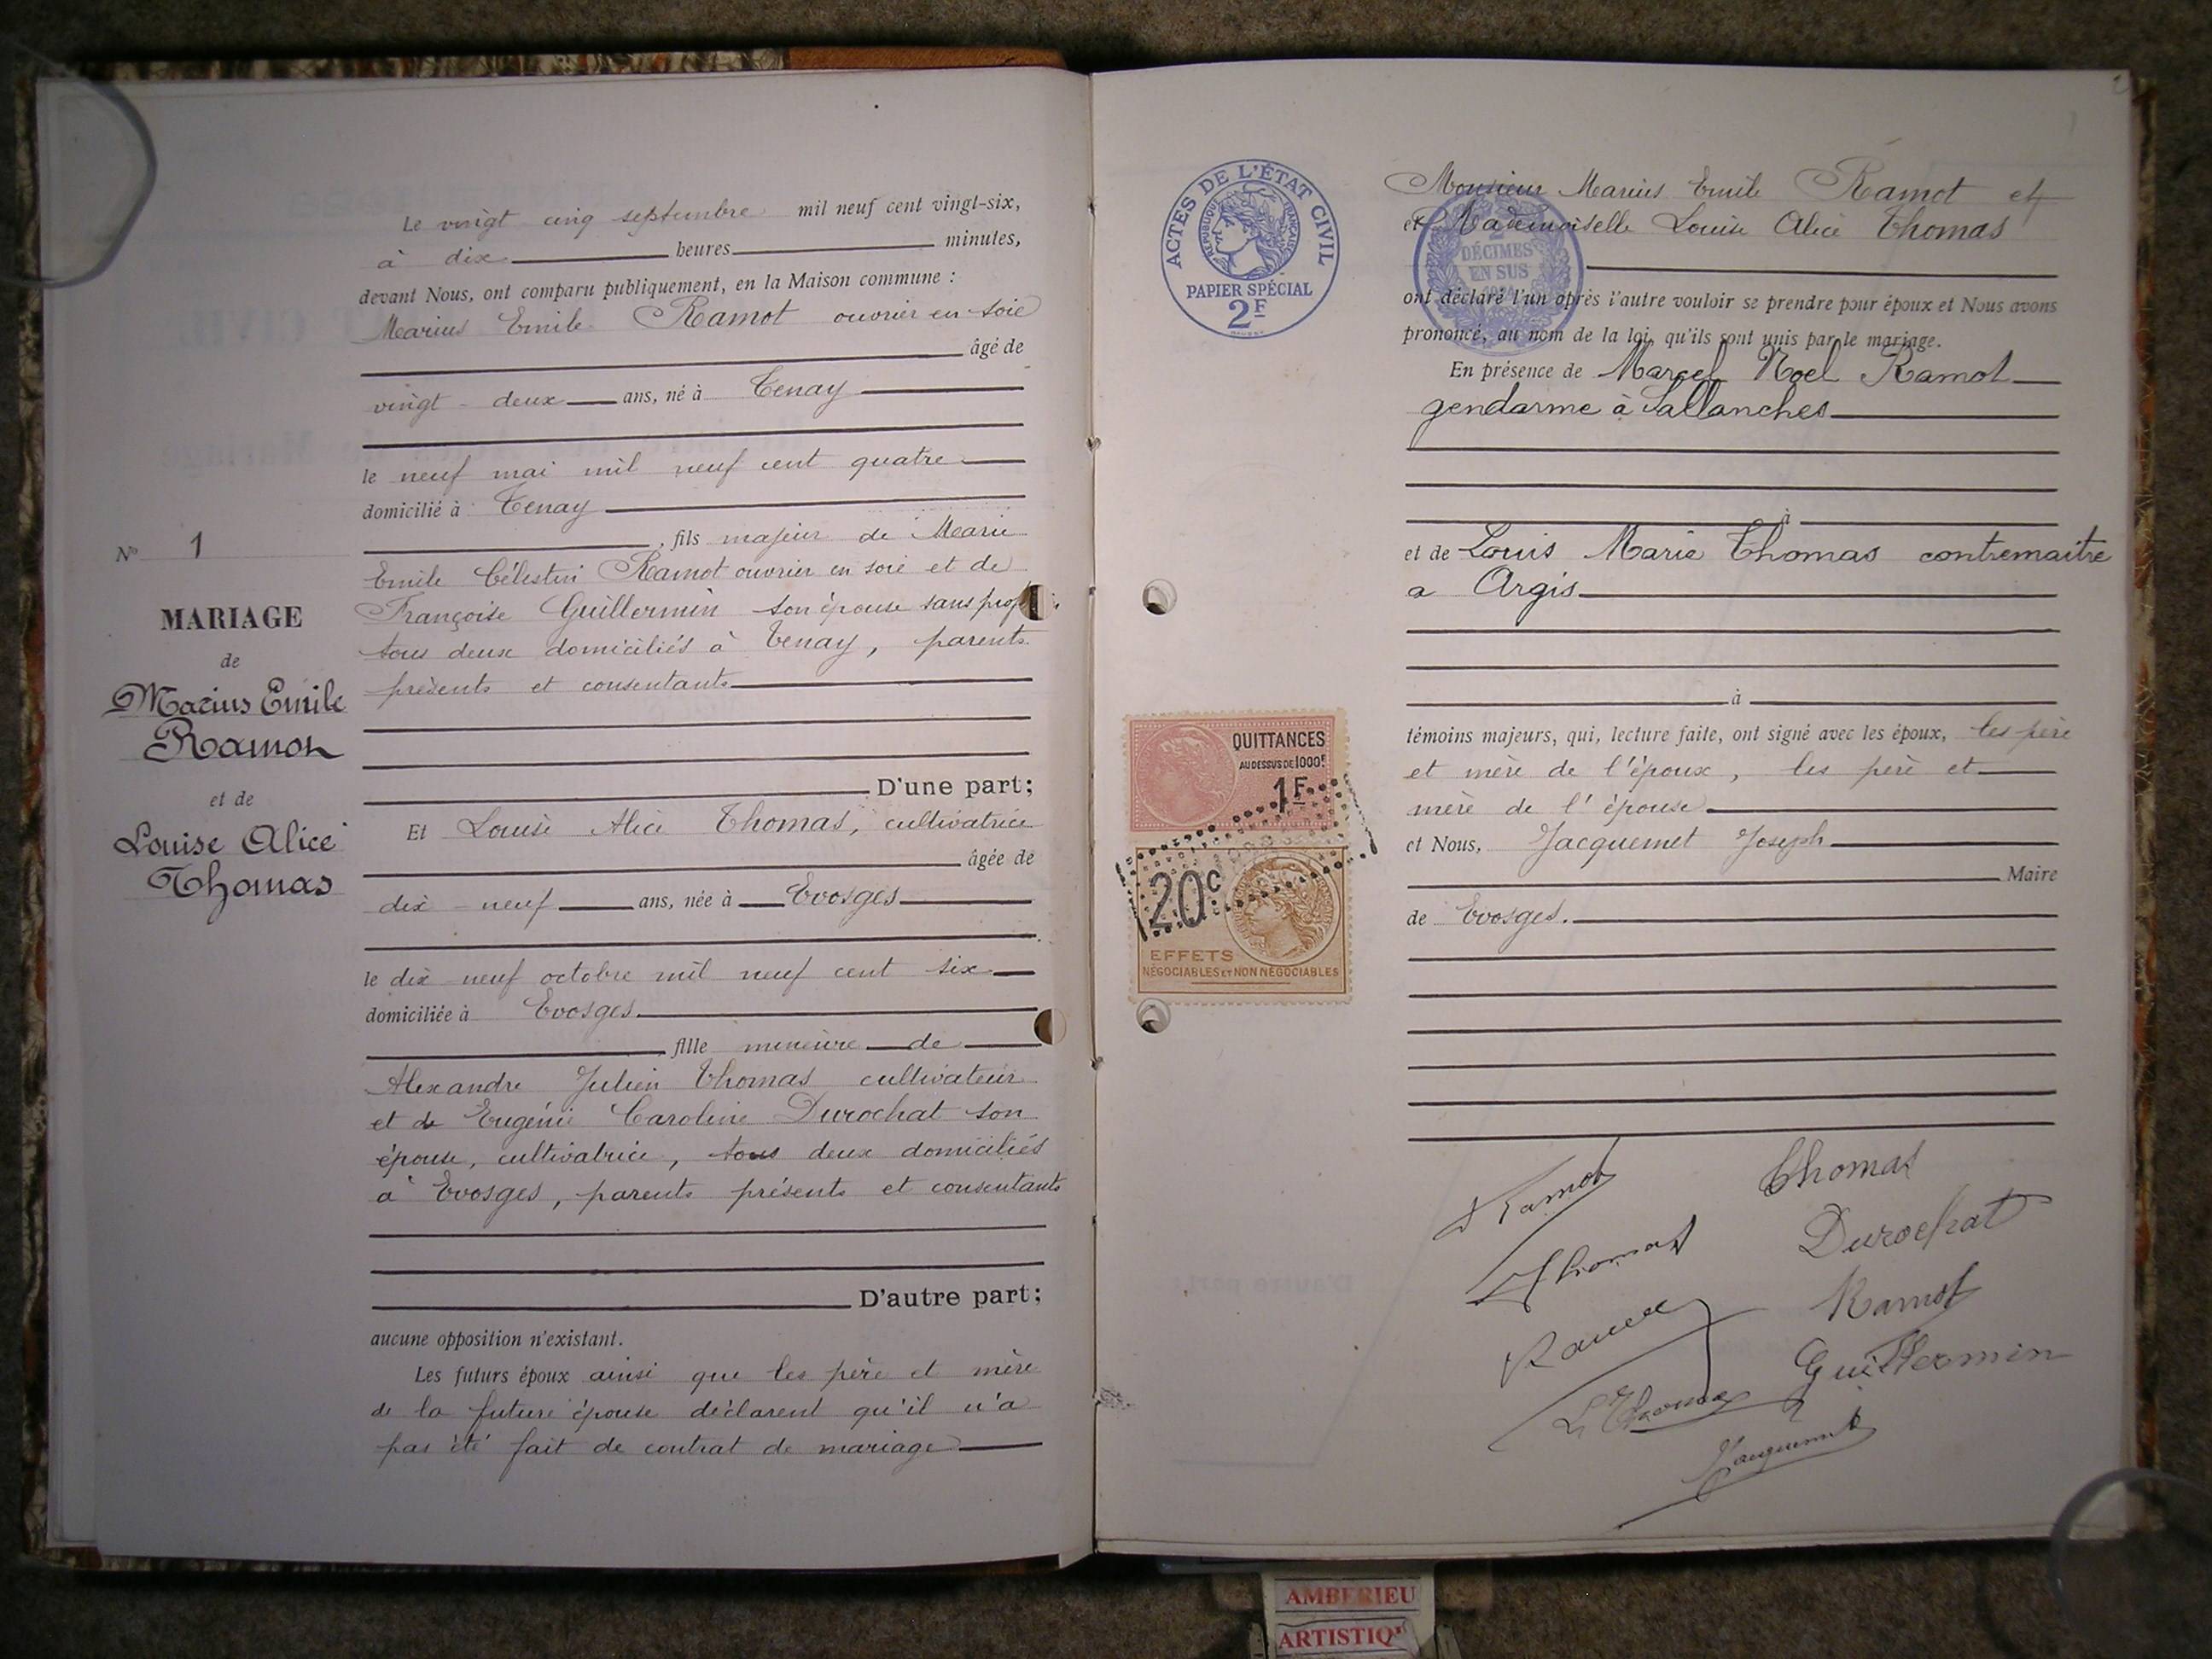 Le vingt cinq septembre mil neuf cent vingt-six,
à dix heures minutes,
devant Nous, ont comparu publiquement, en la Maison commune :
Marius Emile Ramot ouvrier en soie
âgé de
vingt-deux ans, né à Tenay
le neuf mai mil neuf cent quatre
domicilié à Tenay
, fils majeur de Marie
Emile Célestin Ramot ouvrier en soie et de
Françoise Guillermin son épouse sans prof
tous deux domiciliés à Tenay, parents
présents et consentants
D'une part;
Et Louise Alice Thomas, cultivatrice
âgée de
dix-neuf ans, née à Evosges
le dix neuf octobre mil neuf cent six
domiciliée à Evosges
fille mineure de
Alexandre Julien Thomas cultivateur
et de Eugénie Caroline Durochat son
épouse, cultivatrice, tous deux domiciliés
à Evosges, parents présents et consentants
D'autre part;
aucune opposition n'existant.
Les futurs époux ainsi que les père et mère
de la future épouse déclarent qu'il n'a
pas été fait de contrat de mariage
N° 1
MARIAGE
de
Marius Emile
Ramot
et de
Louise Alice
Thomas
ACTES DE L'ÉTAT CIVIL
RÉPUBLIQUE FRANÇAISE
PAPIER SPÉCIAL
2F
2
DÉCIMES
EN SUS
QUITTANCES
AU DESSUS DE 1000F
1F
20c
EFFETS
NÉGOCIABLES ET NON NÉGOCIABLES
Monsieur Marius Emile Ramot et
et Mademoiselle Louise Alice Thomas
ont déclaré l'un après l'autre vouloir se prendre pour époux et Nous avons
prononcé, au nom de la loi, qu'ils sont unis par le mariage.
En présence de Marcel Noel Ramot
gendarme à Sallanches
à
et de Louis Marie Thomas contremaitre
a Argis
à
témoins majeurs, qui, lecture faite, ont signé avec les époux, les père
et mère de l'époux, les père et
mère de l'épouse
et Nous, Jacquemet Joseph
Maire
de Evosges.
Ramot
Thomas
Thomas
Durochat
Ramot
Guillermin
L Thomas
Jacquemet
AMBERIEU
ARTISTIQ